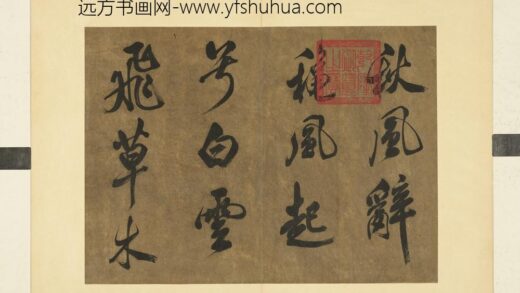 远方书画网-www.yfshuhua.com
秋風辭
秋風起
兮白雲
飛草木